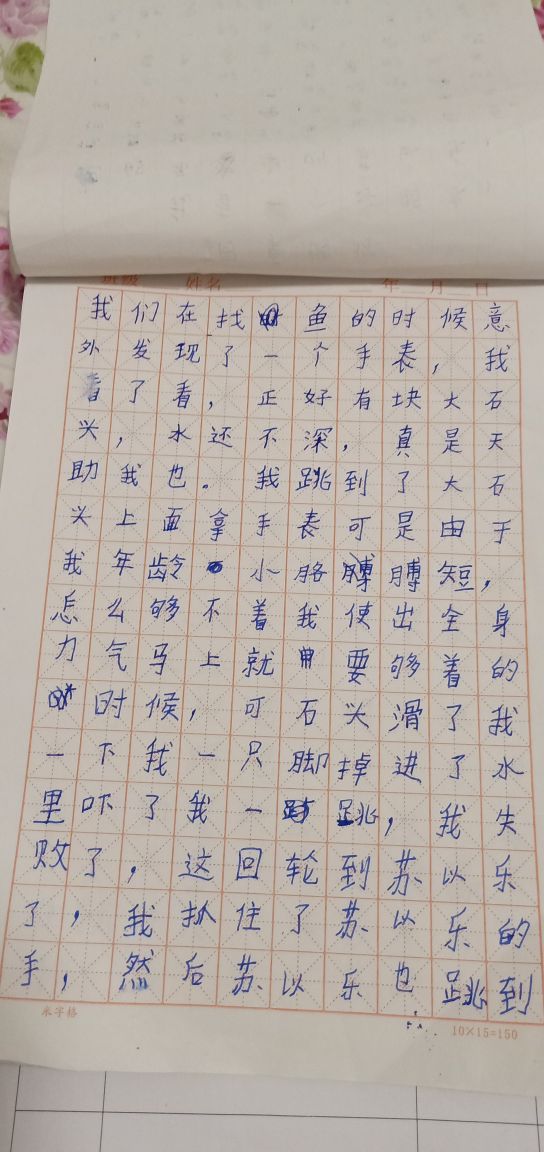 班级 姓名 年 月 日
我们在找鱼的时候意
外发现了一个手表，我
看了看，正好有块大石
头，水还不深，真是天
助我也。我跳到了大石
头上面拿手表可是由于
我年龄小胳膊膊短，
怎么够不着我使出全身
力气马上就要够着的
时候，可石头滑了我
一下我一只脚掉进了水
里吓了我一跳，我失
败了，这回轮到苏以乐
了，我扒住了苏以乐的
手，然后苏以乐也跳到
米字格
10×15=150